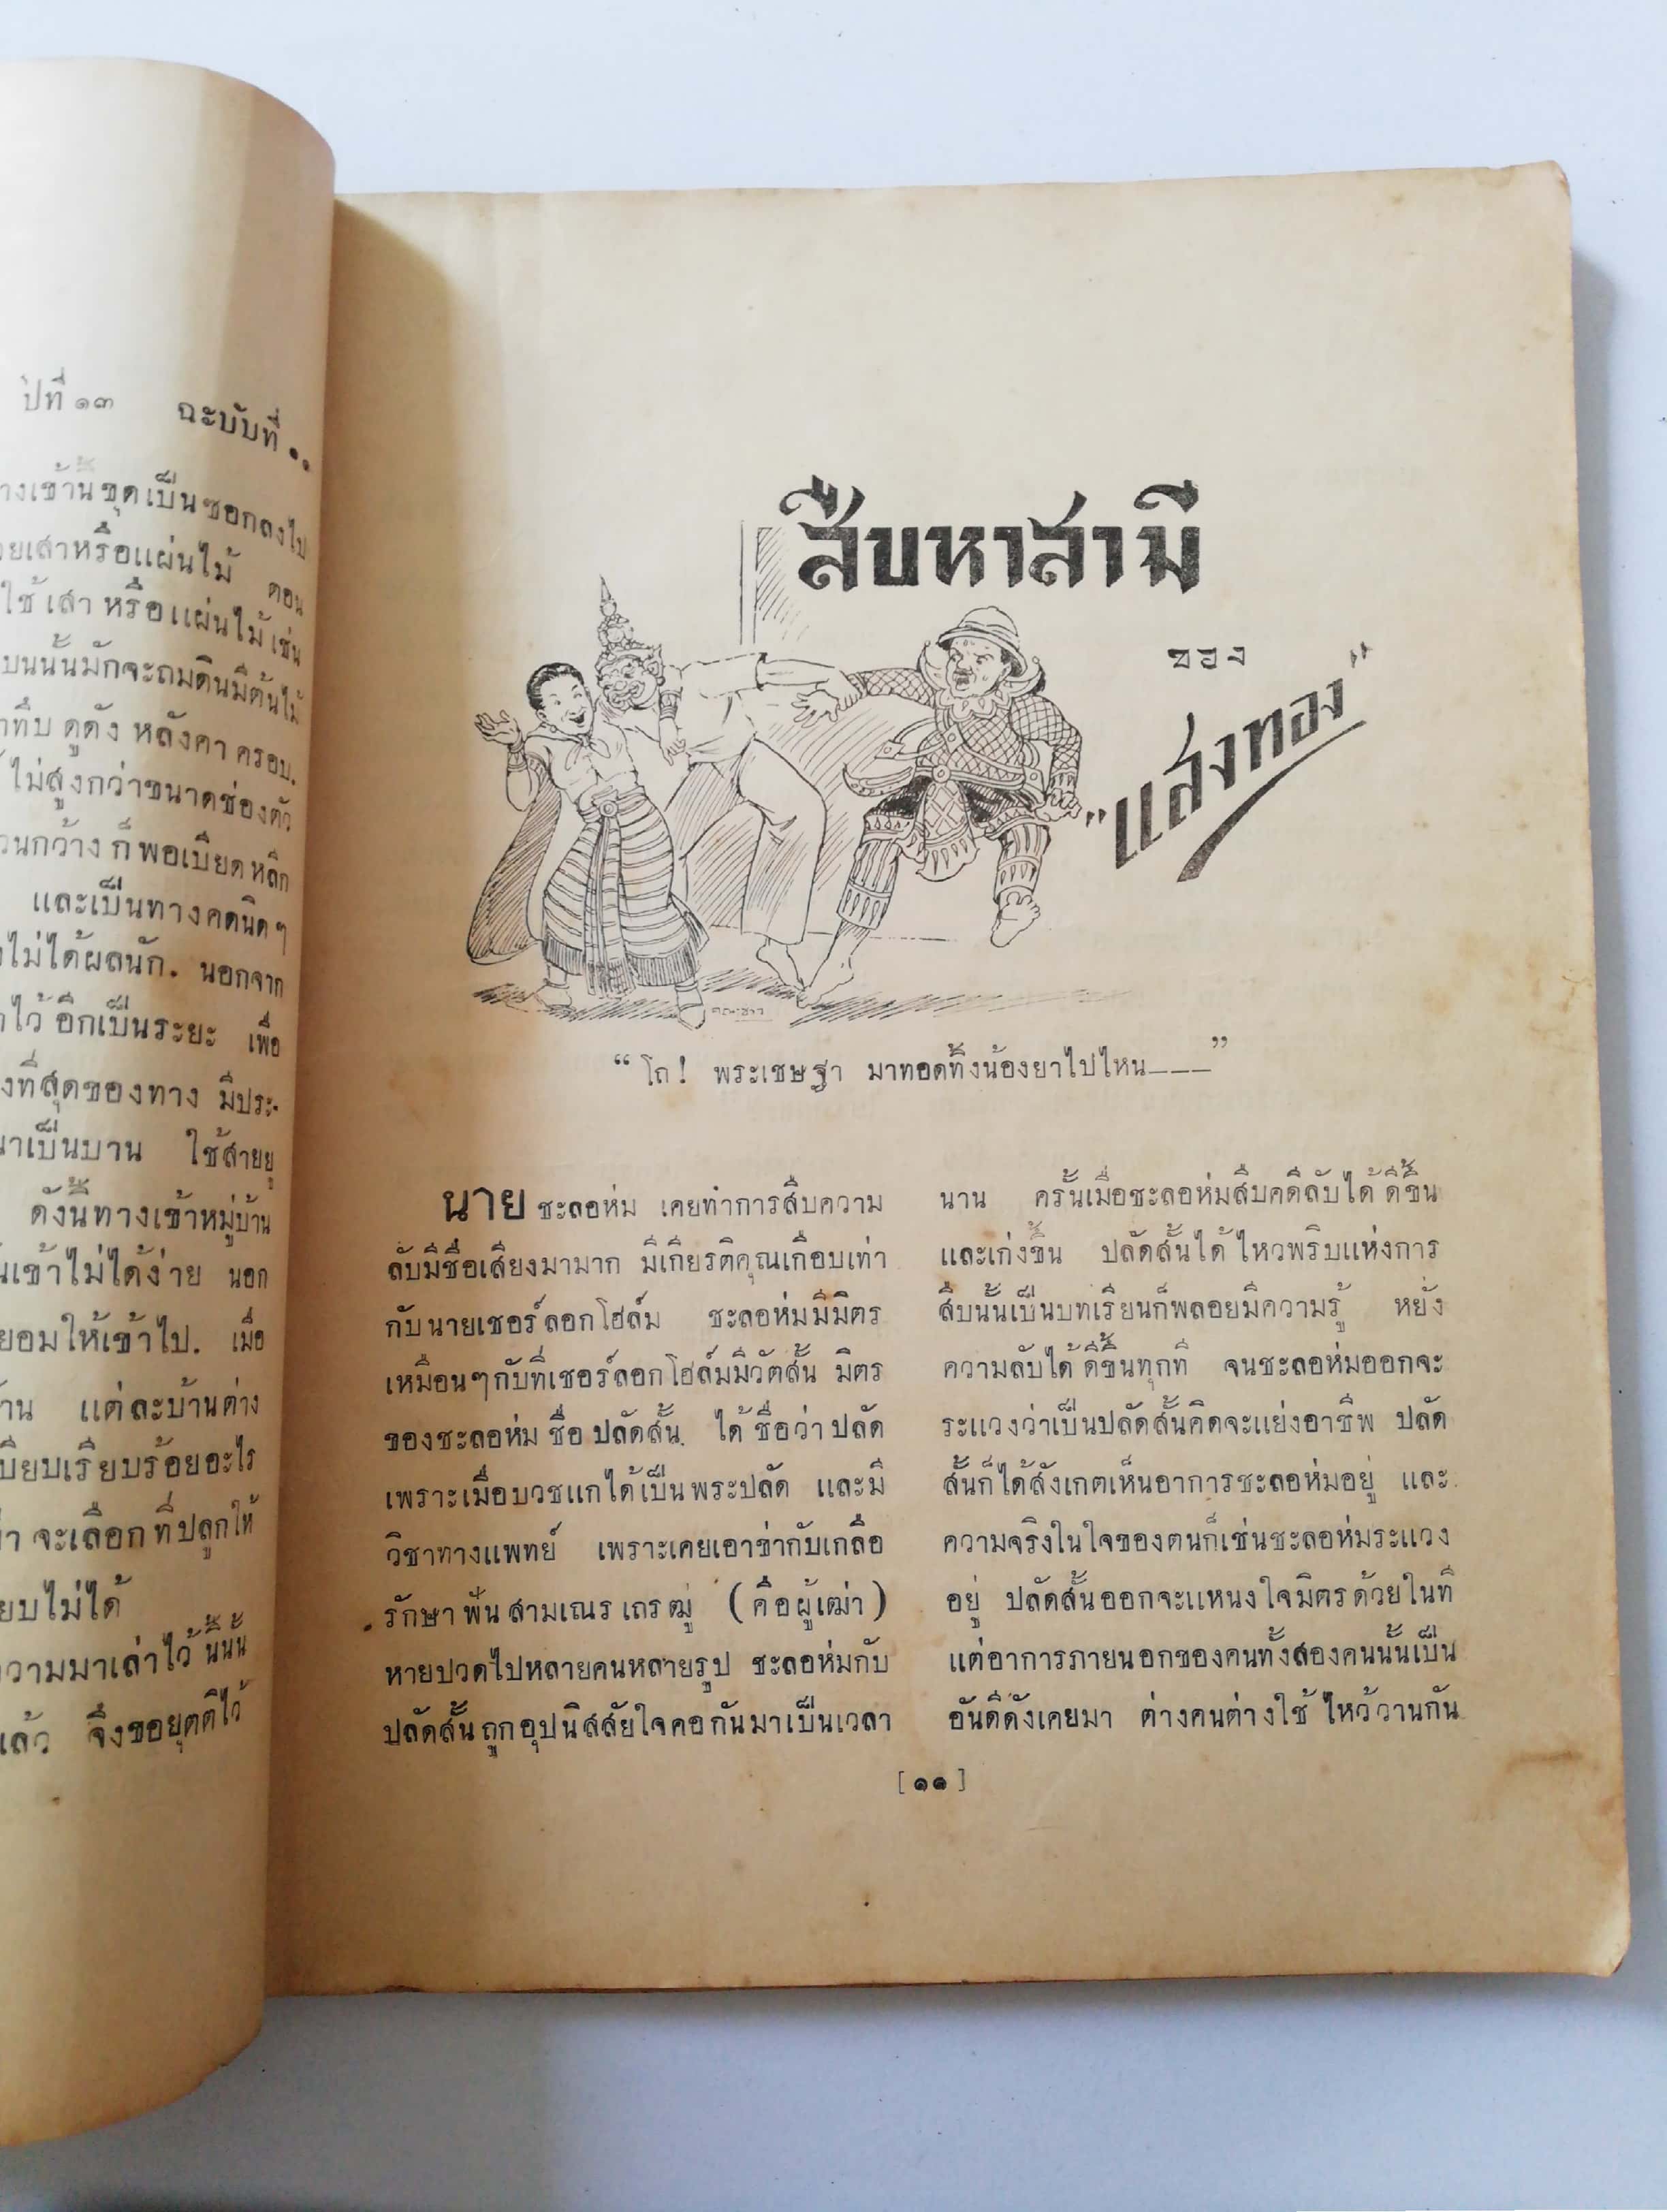 ปีที่ ๑๓ ฉะบับที่
างเข้านี้ขุดเป็นซอกลงไป
วยเสาหรือแผ่นไม้ ตอน
ใช้ เสา หรือแผ่นไม้ เช่น
บนนั้นมักจะถมดินมีต้นไม้
าทึบ ดูดัง หลังคา ครอบ.
ไม่สูงกว่าขนาดช่องตัว
วนกว้าง ก็ พอเบียด หลีก
และเป็นทางคดนิดๆ
ไม่ได้ผลนัก. นอกจาก
ไว้ อีกเป็นระยะ เพื่อ
งที่สุดของทาง มีประ-
นาเป็นบาน ใช้สายยู
ดังนี้ทางเข้าหมู่บ้าน
นเข้าไม่ได้ง่าย นอก
ยอมให้เข้าไป. เมื่อ
้าน แต่ละบ้านต่าง
เบียบเรียบร้อยอะไร
่า จะเลือก ที่ปลูกให้
ยบไม่ได้
วามมาเล่าไว้ นี้นั้น
แล้ว จึงขอยุตติไว้
สืบหาสามี
ของ
"แสงทอง"
“ โถ! พระเชษฐา มาทอดทิ้งน้องยาไปไหน——— ”
นาย ชะลอห่ม เคยทำการสืบความ
ลับมีชื่อเสียงมามาก มีเกียรติคุณเกือบเท่า
กับนายเชอร์ลอกโฮล์ม ชะลอห่มมีมิตร
เหมือนๆกับที่เชอร์ลอกโฮล์มมีวัตสั้น มิตร
ของชะลอห่ม ชื่อ ปลัดสั้น. ได้ ชื่อว่า ปลัด
เพราะเมื่อบวชแกได้เป็นพระปลัด และมี
วิชาทางแพทย์ เพราะเคยเอาข่ากับเกลือ
รักษา ฟัน สามเณร เถร ฒู่ (คือ ผู้เฒ่า)
หายปวดไปหลายคนหลายรูป ชะลอห่มกับ
ปลัดสั้น ถูก อุปนิสสัยใจคอ กันมาเป็นเวลา
นาน ครั้นเมื่อชะลอห่มสืบคดีลับได้ ดีขึ้น
และเก่งขึ้น ปลัดสั้นได้ ไหวพริบแห่งการ
สืบนั้นเป็นบทเรียนก็พลอยมีความรู้ หยั่ง
ความลับได้ ดีขึ้นทุกที จนชะลอห่มออกจะ
ระแวงว่าเป็นปลัดสั้นคิดจะแย่งอาชีพ ปลัด
สั้นก็ได้สังเกตเห็นอาการชะลอห่มอยู่ และ
ความจริงในใจของตนก็เช่นชะลอห่มระแวง
อยู่ ปลัดสั้นออกจะแหนงใจมิตรด้วยในที
แต่อาการภายนอกของคนทั้งสองคนนั้นเป็น
อันดีดังเคยมา ต่างคนต่างใช้ ไหว้วานกัน
[๑๑]